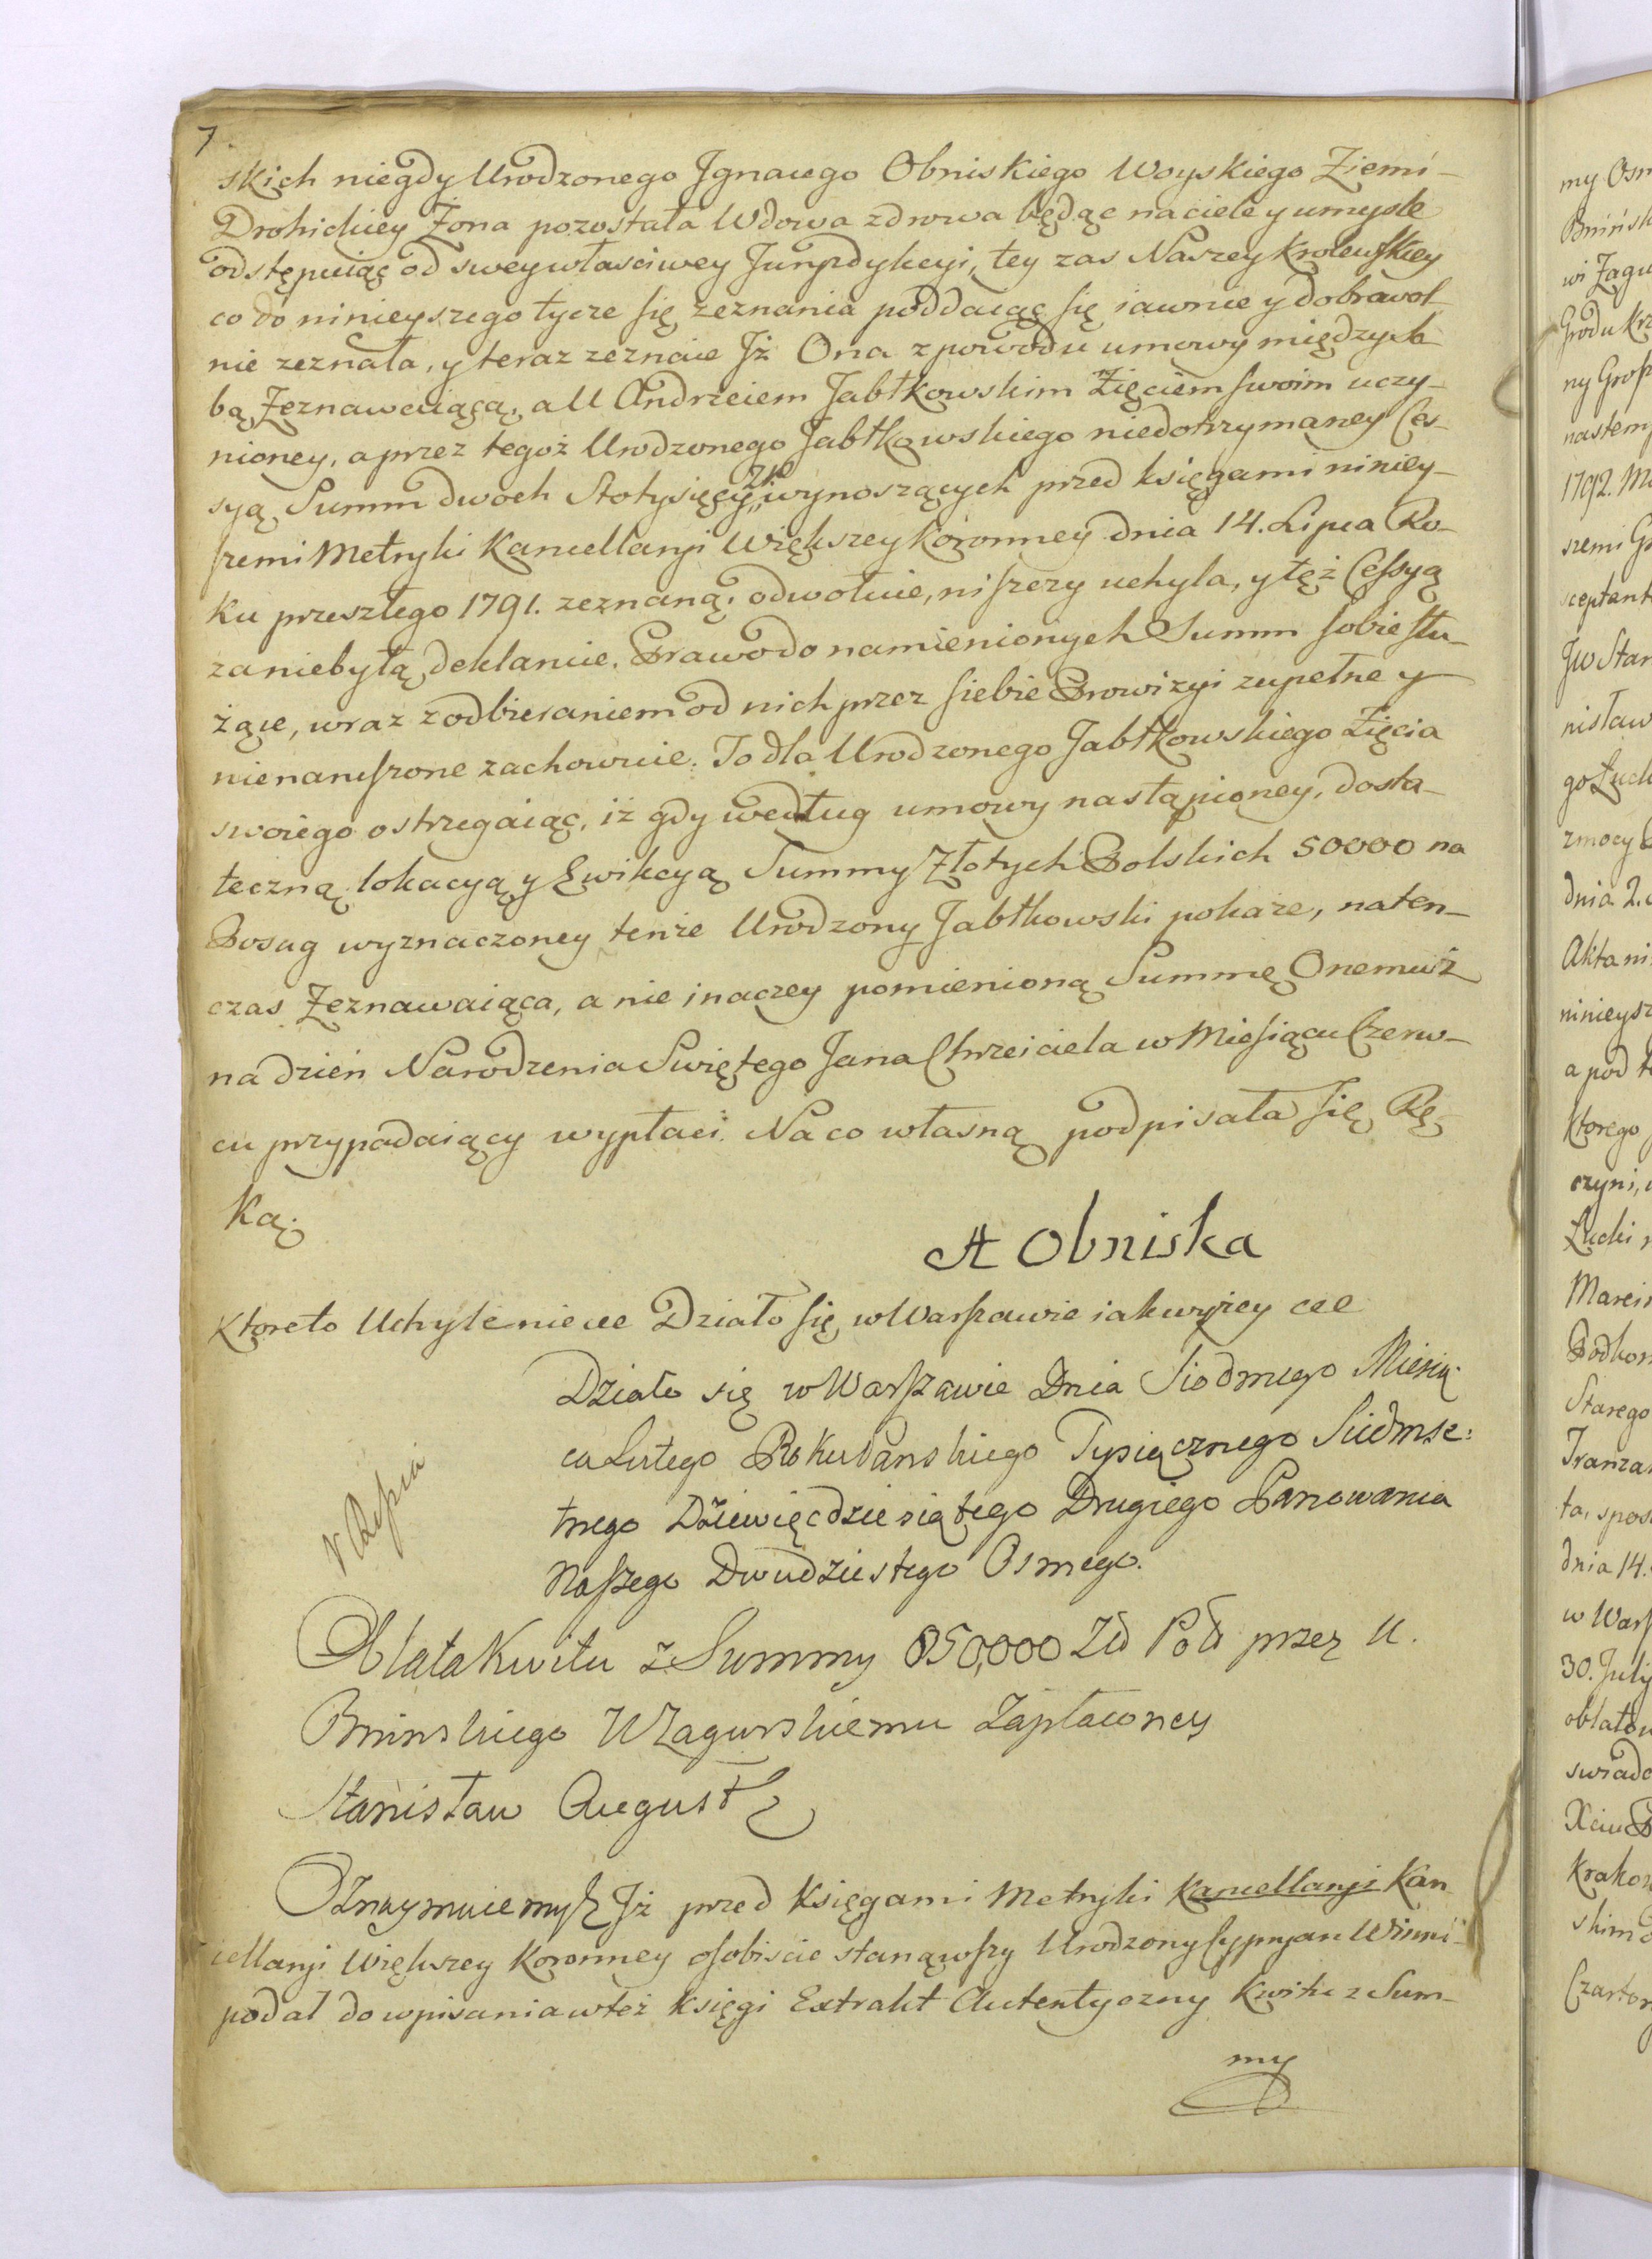 7
skich niegdy Urodzonego Jgnacego Obniskiego Woyskiego Ziemi
Drohickiey Żona pozostała Wdowa zdrowa będąc na ciele y umysle
odstępuiąc od swey własciwey Juryzdykcyi, tey zas Naszey Krolewskiey
co do ninieyszego tycze się zeznania poddaiąc się iawnie y dobrowol-
nie zeznała, y teraz zeznaie Jż Ona z powodu umowy między so-
bą Zeznawaiącą, a U Andrzeiem Jabłkowskim Zięciem swoim uczy-
nioney, a przez tegoż Urodzonego Jabłkowskiego niedotrzymaney Ces-
syą Summ dwoch Stotysięcy Zł wynoszących przed księgami niniey-
szemi Metryki Kancellaryi Większey Koronney dnia 14. Lipca Ro-
ku przeszłego 1791. zeznaną, odwołuie, niszczy uchyla, y tęż Cessyą
za niebyłą deklaruie. Prawo do namienionych Summ sobie słu-
żące, wraz z odbieraniem od nich przez siebie Prowizyi zupełne y
nienaruszone zachowuie. To dla Urodzonego Jabłkowskiego Zięcia
swoiego ostrzegaiąc, iż gdy według umowy nastąpioney, dosta-
teczną lokacyą y Ewikcyą Summy Złotych Polskich 50000 na
Posag wyznaczoney tenże Urodzony Jabłkowski pokaże, naten-
czas Zeznawaiąca, a nie inaczey pomienioną Summę Onemuż
na dzień Narodzenia Swiętego Jana Chrzciciela w Miesiącu Czerw-
cu przypadaiący wypłaci. Na co własną podpisała się Rę-
Ką.
A Obniska
Ktoreto Uchylenie etc Działo się w Warszawie iak wyżey etc
Działo się w Warszawie Dnia Siodmego Miesią-
ca Lutego Roku Panskiego Tysiącznego Siedmse-
tnego Dziewięcdziesiątego Drugiego Panowania
Naszego Dwudziestego Osmego.
Oblata Kwitu z Summy 850,000 Zł Pol przez U.
Bninskiego U Zagurskiemu Zapłaconey
Stanisław August
Oznaymuiemy Jż przed Księgami Metryki Kancellaryi Kan
cellaryi Większey Koronney osobiscie stanąwszy Urodzony Cypryan Winni-
podał do wpisania w też Księgi Extrakt Autentyczny Kwitu z Sum-
my